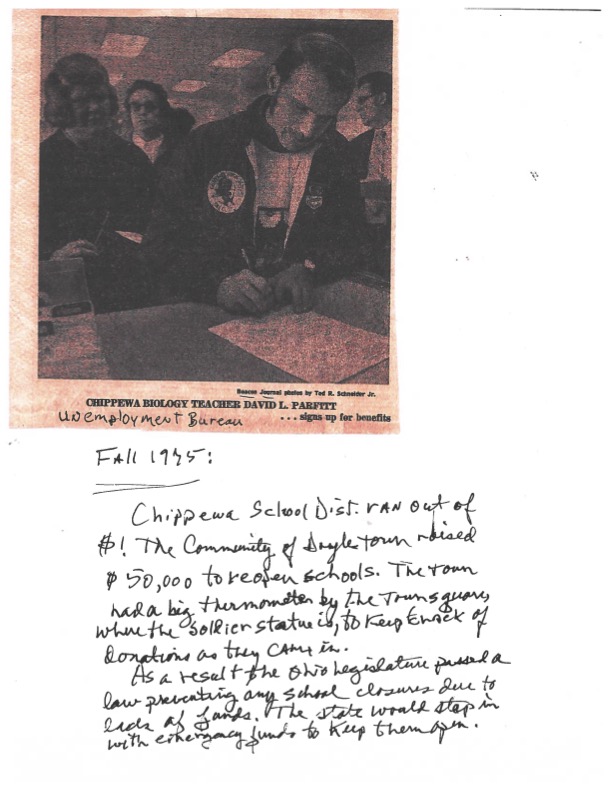 Beacon Journal photos by Ted R. Schneider Jr.
CHIPPEWA BIOLOGY TEACHER DAVID L. PARFITT
Unemployment Bureau
... signs up for benefits
Fall 1975:
Chippewa School Dist. ran out of
$! The Community of Doylestown raised
$50,000 to reopen schools. The town
had a big thermometer by the Town square,
where the soldier statue is, to keep track of
donations as they came in.
As a result the Ohio Legislature passed a
law preventing any school closures due to
lack of funds. The state would step in
with emergency funds to keep them open.